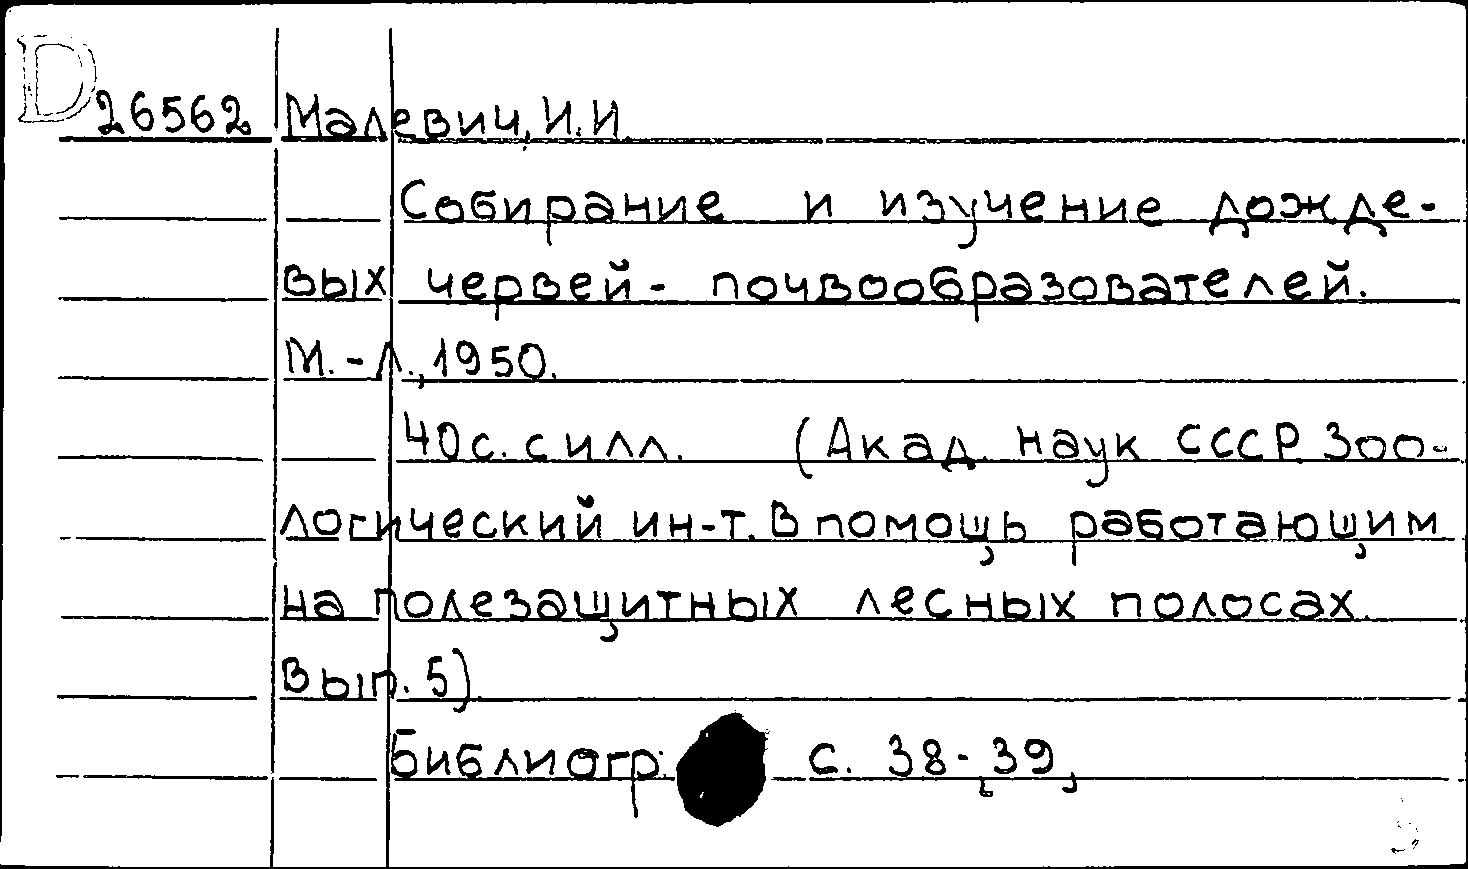 D 26562 Малевич, И.И.
Собирание и изучение дожде-
вых червей - почвообразователей.
М.-Л., 1950.
40 с. с илл. (Акад. наук СССР Зоо-
логический ин-т. В помощь работающим
на полезащитных лесных полосах.
Вып. 5).
Библиогр: с. 38-39,